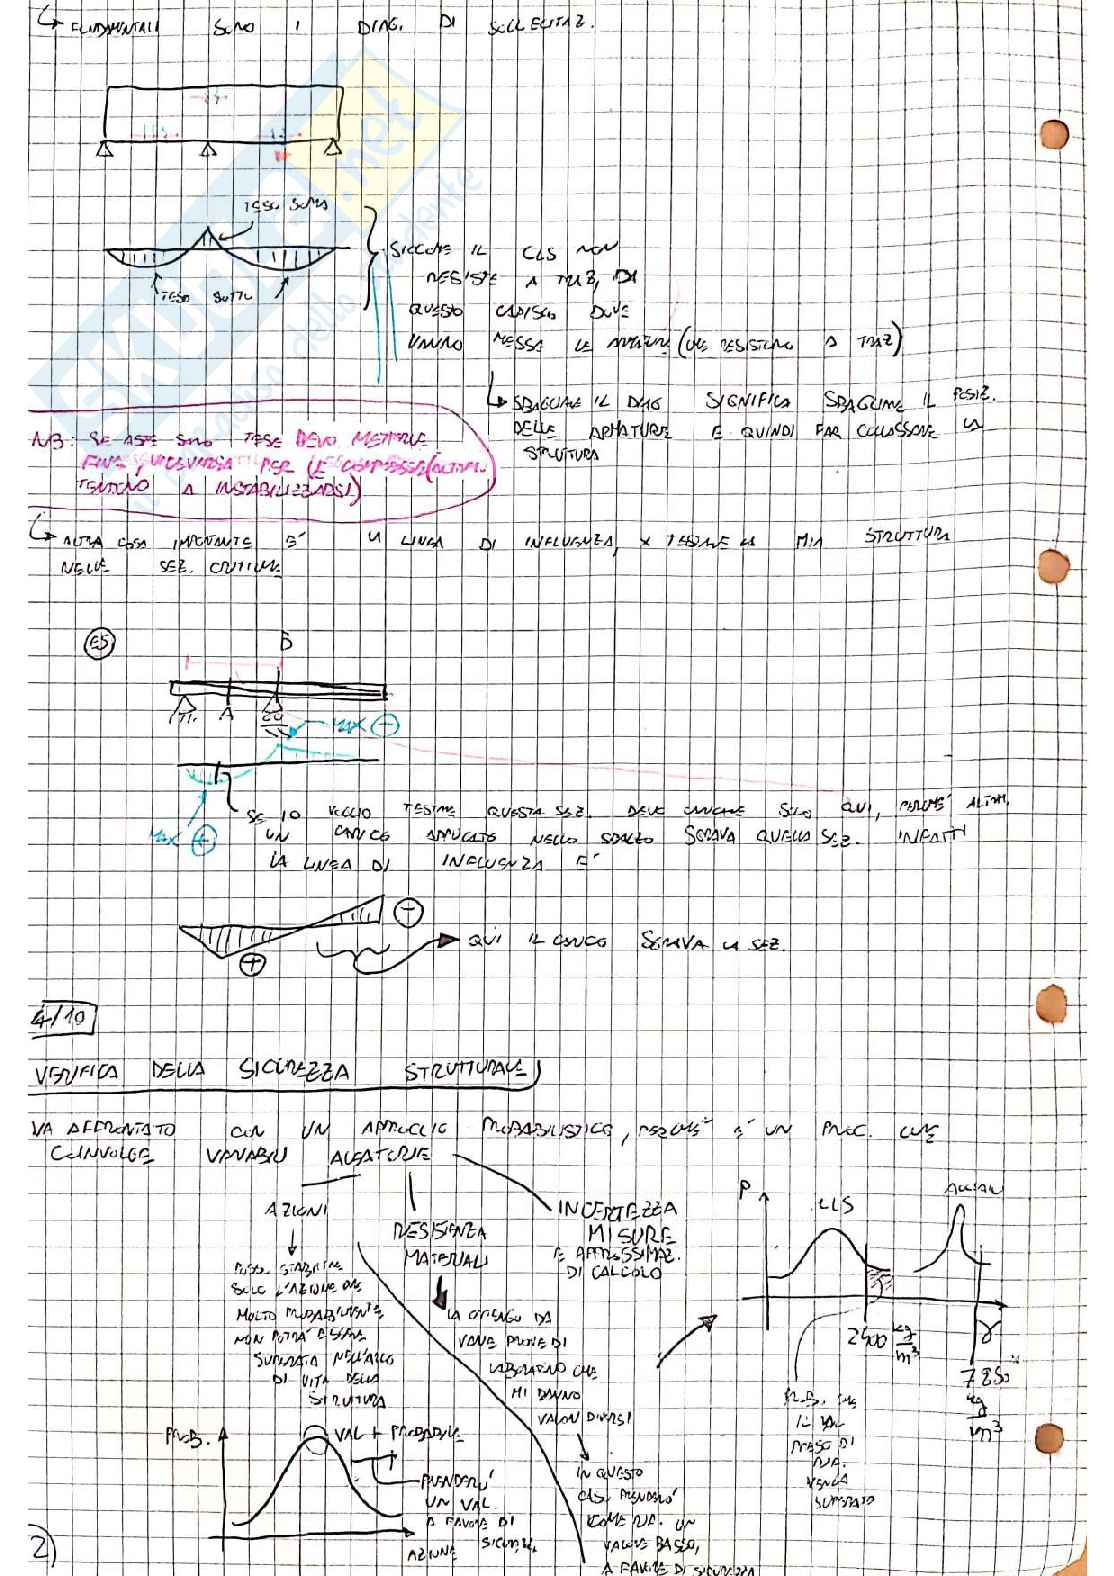 FONDAMENTALI SONO I DIAG. DI SOLLECITAZ.
TESO SOPRA
TESO SOTTO
SICCOME IL CLS NON
RESISTE A TRAZ, DA
QUESTO CAPISCO DOVE
VANNO MESSE LE ARMATURE (CHE RESISTONO A TRAZ)
SBAGLIARE IL DIAG SIGNIFICA SBAGLIARE IL POSIZ.
DELLE ARMATURE E QUINDI FAR COLLASSARE LA
STRUTTURA
NB: SE ASTE SONO TESE DEVO METTERLE
FINE, VICEVERSA PER LE COMPRESSE (ALTRIM.
TENDONO A INSTABILIZZARSI)
ALTRA COSA IMPORTANTE E' LA LINEA DI INFLUENZA, X TESTARE LA MIA STRUTTURA
NELLE SEZ. CRITICHE
ES
B
A
MAX -
MAX +
SE IO VOGLIO TESTARE QUESTA SEZ. DEVO CARICARE SOLO QUI, PERCHE' ALTRIM.
UN CARICO APPLICATO NELLO SBALZO SGRAVA QUELLA SEZ. INFATTI
LA LINEA DI INFLUENZA E'
+
QUI IL CARICO SGRAVA LA SEZ.
4/10
VERIFICA DELLA SICUREZZA STRUTTURALE
VA AFFRONTATO CON UN APPROCCIO PROBABILISTICO, PERCHE' E' UN PROC. CHE
COINVOLGE VARIABILI ALEATORIE
AZIONI
POSSO STABILIRE
SOLO L'AZIONE CHE
MOLTO PROBABILMENTE
NON POTRA' ESSERE
SUPERATA NELL'ARCO
DI VITA DELLA
STRUTTURA
RESISTENZA
MATERIALI
LA OTTENGO DA
VARIE PROVE DI
LABORATORIO CHE
MI DANNO
VALORI DIVERSI
IN QUESTO
CASO PRENDERO'
COME RIF. UN
VALORE BASSO,
A FAVORE DI SICUREZZA
INCERTEZZA
MISURE
E APPROSSIMAZ.
DI CALCOLO
P
CLS
ACCIAIO
2400 kg/m³
γ
7850 kg/m³
IL VAL
PRESO DI
RIF.
VENGA
SUPERATO
PROB.
VAL + PROBABILE
PRENDERO'
UN VAL.
A FAVORE DI
SICUREZ.
AZIONE
2)
skuola.net